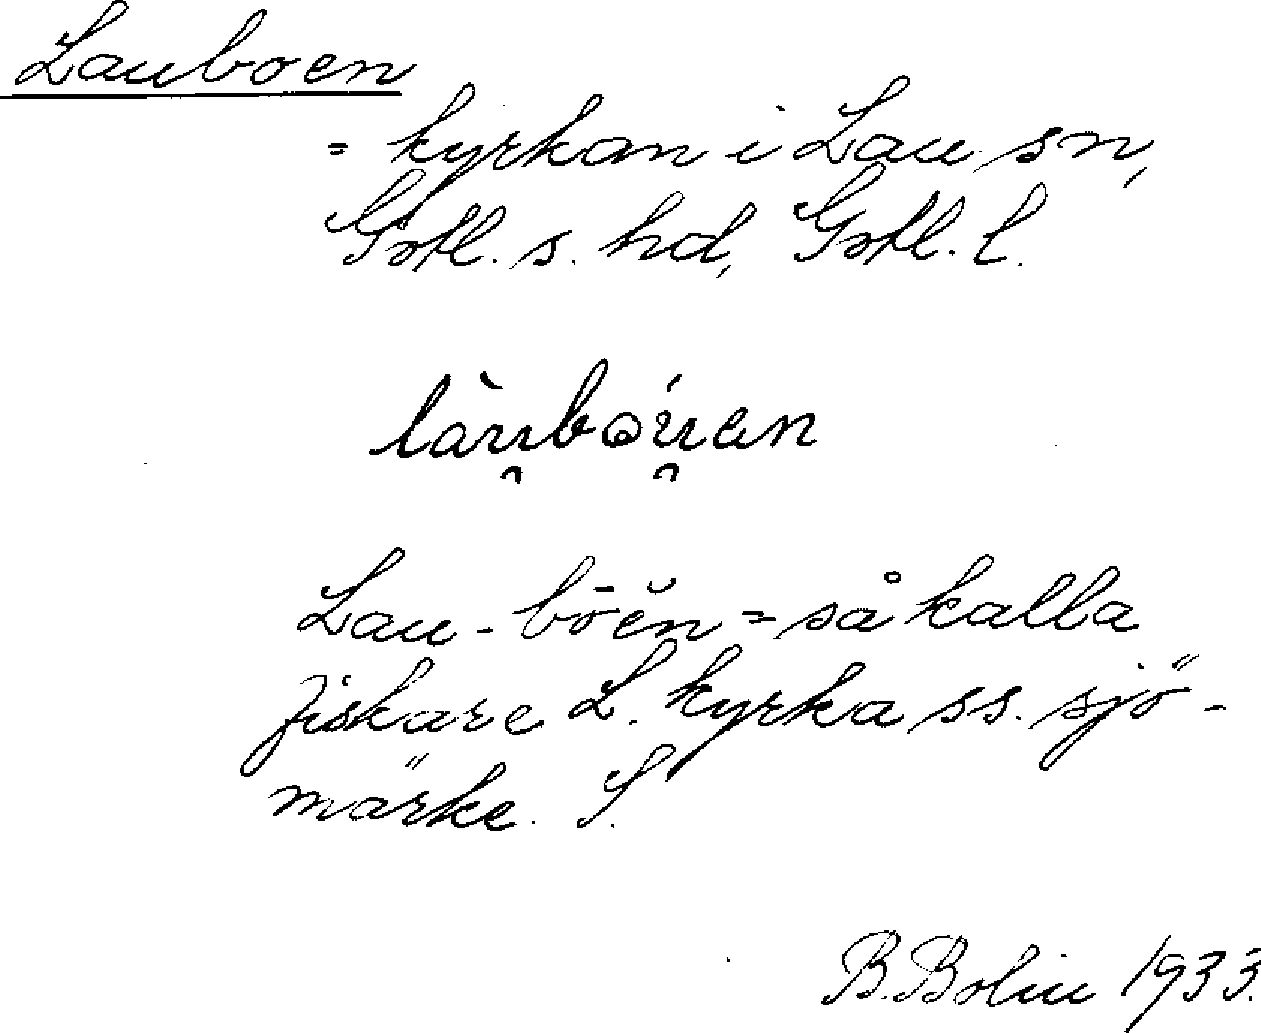 Lauboen
= kyrkan i Lau sn,
Gotl. s. hd, Gotl. l.
làu̯bəú̯en
Lau-bōĕn = så kalla
fiskare L. kyrka ss. sjö-
märke. S.
B. Bolin 1933.